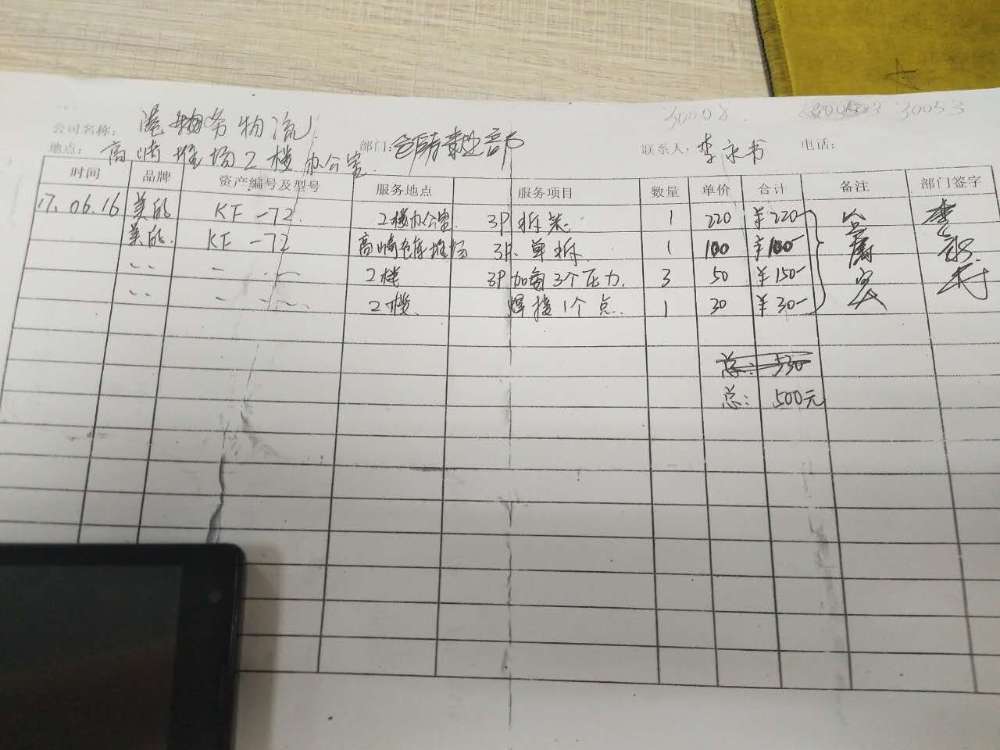 30008 30053
公司名称: 港物劳物流 部门: 联系人: 李永书 电话:
地点: 高崎堆场2楼办公室
时间 品牌 资产编号及型号 服务地点 服务项目 数量 单价 合计 备注 部门签字
17.06.16 美的 KF-72 2楼办公室 3P 拆装 1 220 ¥220-
美的 KF-72 高崎仓库堆场 3P 单拆 1 100 ¥100-
2楼 3P 加氟3个压力 3 50 ¥150-
2楼 焊接1个点 1 30 ¥30-
总: 530
总: 500元